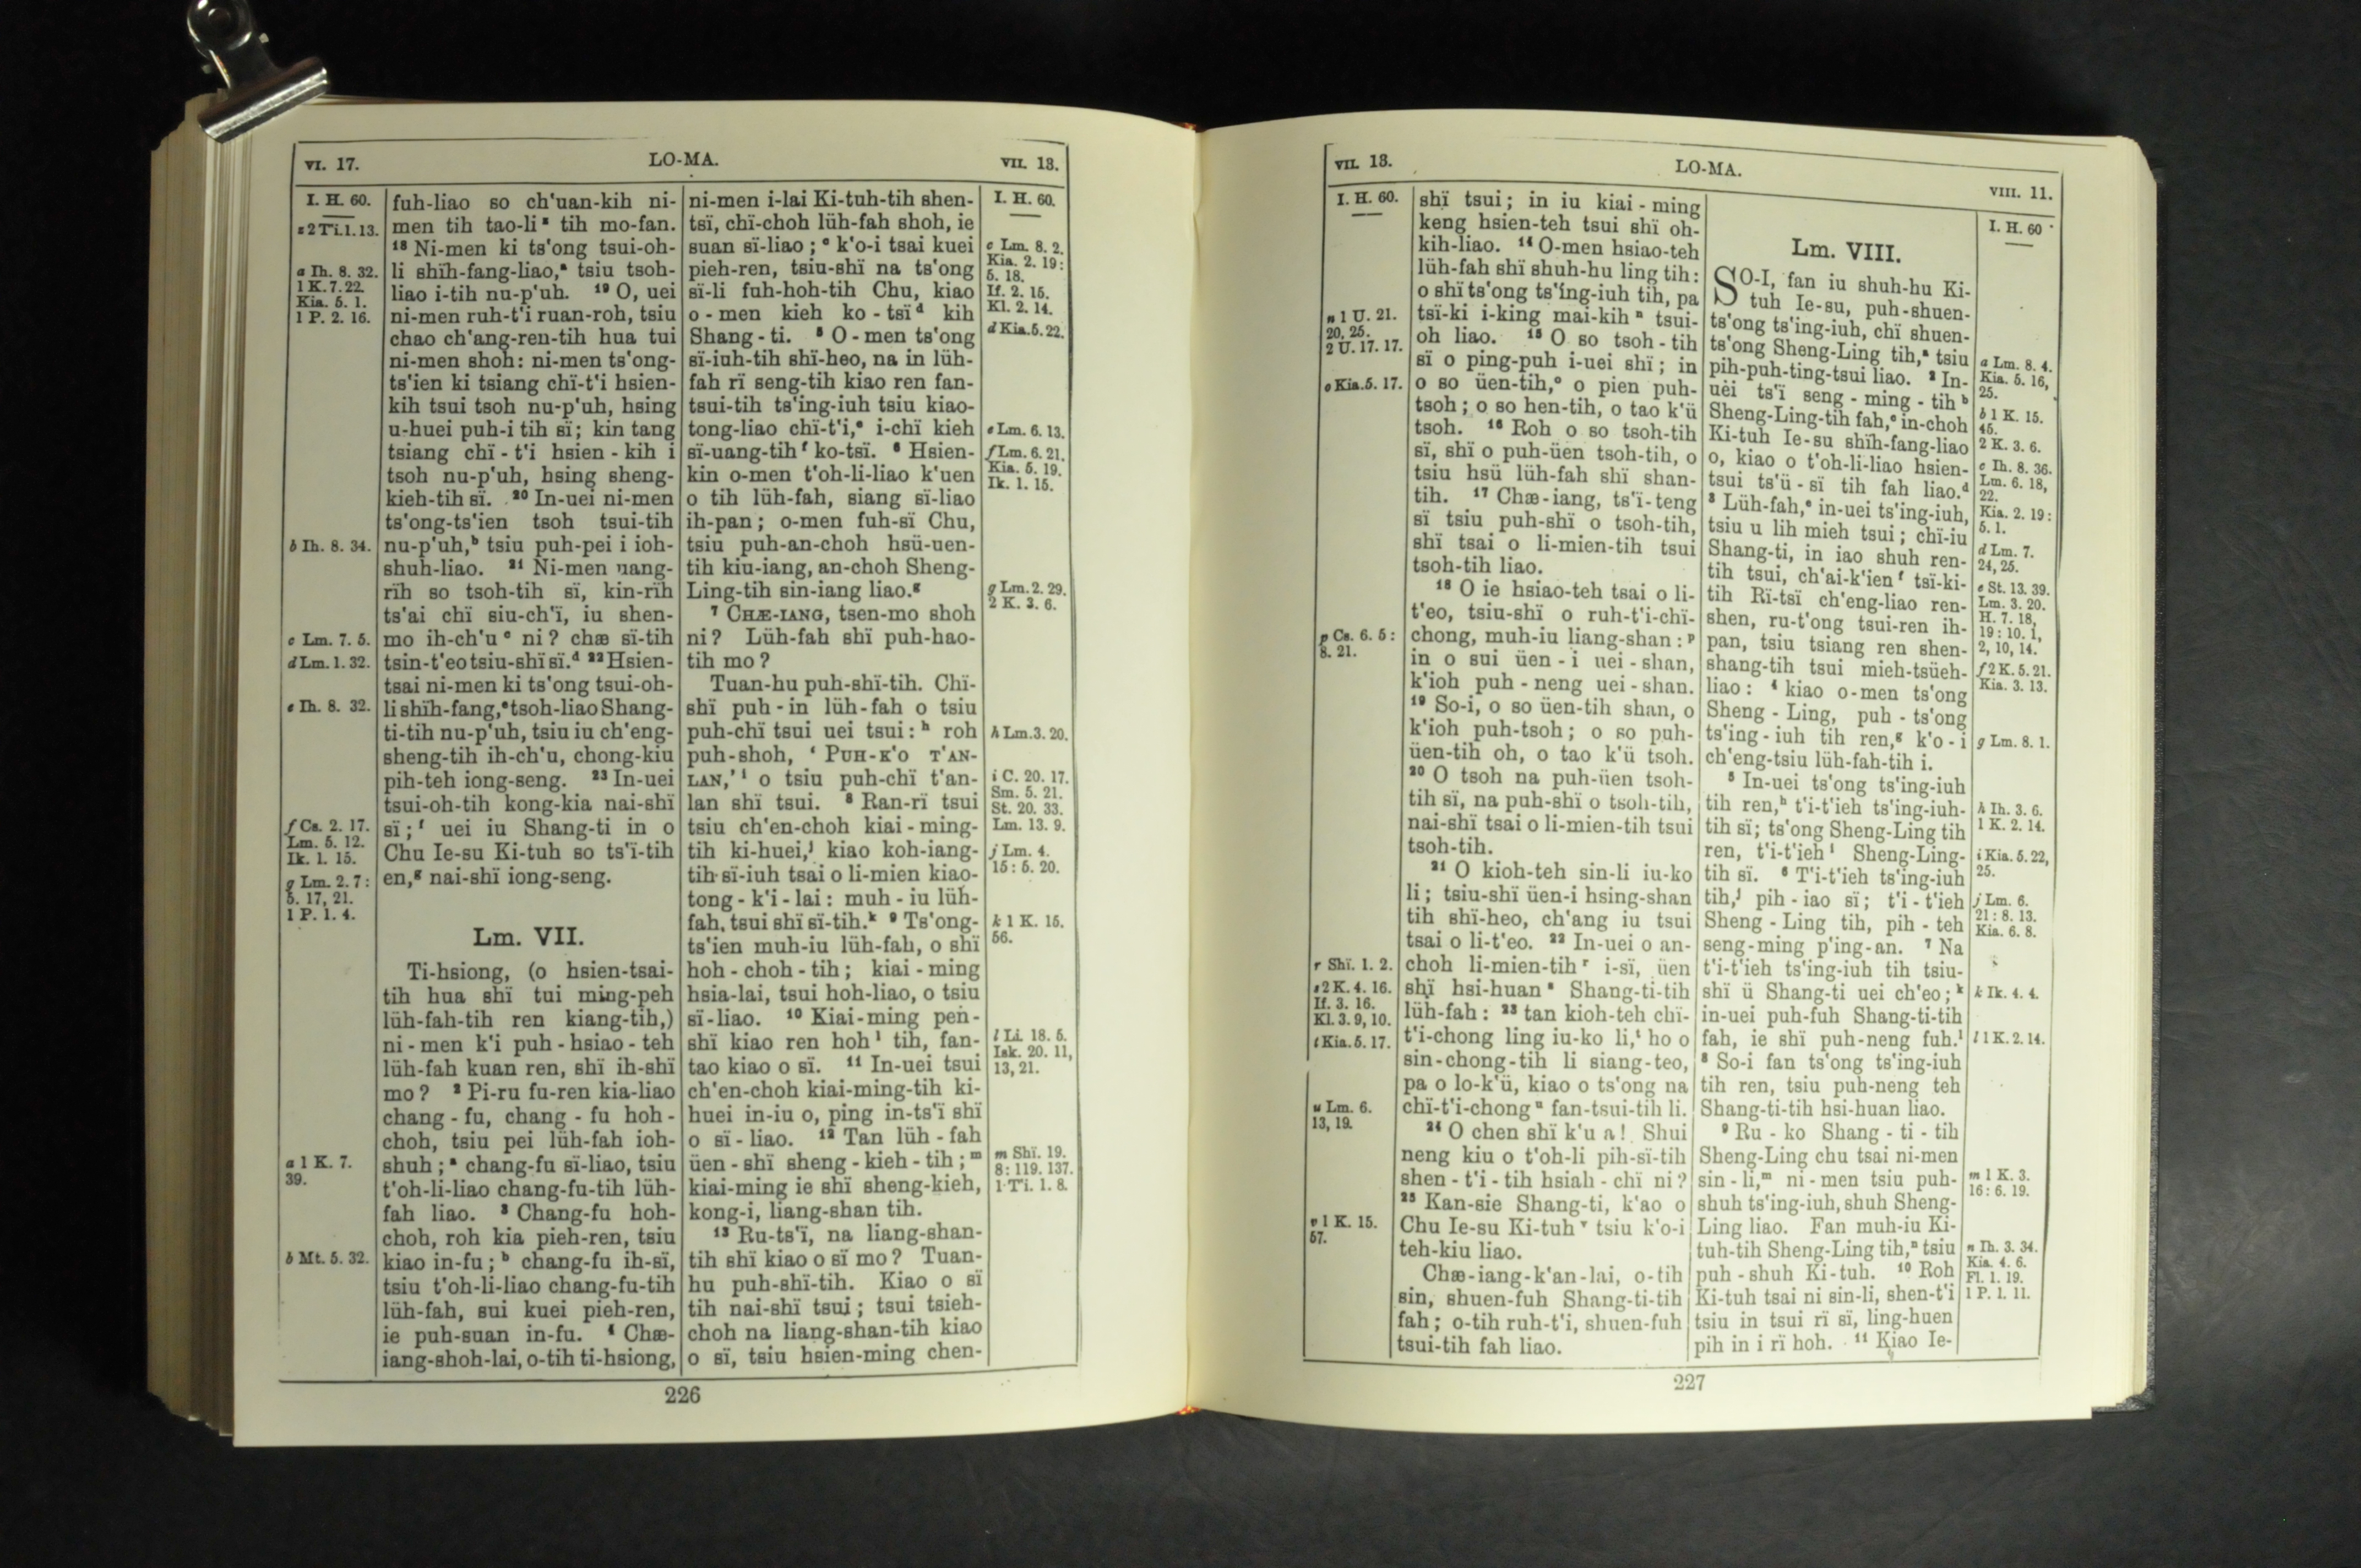 VI. 17.
LO-MA.
VII. 13.
I. H. 60.
z 2 Ti. 1. 13.
a Ih. 8. 32.
1 K. 7. 22.
Kia. 5. 1.
1 P. 2. 16.
b Ih. 8. 34.
c Lm. 7. 5.
d Lm. 1. 32.
e Ih. 8. 32.
f Cs. 2. 17.
Lm. 5. 12.
Ik. 1. 15.
g Lm. 2. 7:
5. 17, 21.
1 P. 1. 4.
a 1 K. 7.
39.
b Mt. 5. 32.
fuh-liao so ch'uan-kih ni-
men tih tao-li z tih mo-fan.
18 Ni-men ki ts'ong tsui-oh-
li shïh-fang-liao,a tsiu tsoh-
liao i-tih nu-p'uh. 19 O, uei
ni-men ruh-t'i ruan-roh, tsiu
chao ch'ang-ren-tih hua tui
ni-men shoh: ni-men ts'ong-
ts'ien ki tsiang chï-t'i hsien-
kih tsui tsoh nu-p'uh, hsing
u-huei puh-i tih sï; kin tang
tsiang chï-t'i hsien-kih i
tsoh nu-p'uh, hsing sheng-
kieh-tih sï. 20 In-uei ni-men
ts'ong-ts'ien tsoh tsui-tih
nu-p'uh,b tsiu puh-pei i ioh-
shuh-liao. 21 Ni-men uang-
rïh so tsoh-tih sï, kin-rïh
ts'ai chï siu-ch'ï, iu shen-
mo ih-ch'u c ni? chæ sï-tih
tsin-t'eo tsiu-shï sï.d 22 Hsien-
tsai ni-men ki ts'ong tsui-oh-
li shïh-fang,e tsoh-liao Shang-
ti-tih nu-p'uh, tsiu iu ch'eng-
sheng-tih ih-ch'u, chong-kiu
pih-teh iong-seng. 23 In-uei
tsui-oh-tih kong-kia nai-shï
sï;f uei iu Shang-ti in o
Chu Ie-su Ki-tuh so ts'ï-tih
en,g nai-shï iong-seng.
Lm. VII.
Ti-hsiong, (o hsien-tsai-
tih hua shï tui ming-peh
lüh-fah-tih ren kiang-tih,)
ni-men k'i puh-hsiao-teh
lüh-fah kuan ren, shï ih-shï
mo? 2 Pi-ru fu-ren kia-liao
chang-fu, chang-fu hoh-
choh, tsiu pei lüh-fah ioh-
shuh;a chang-fu sï-liao, tsiu
t'oh-li-liao chang-fu-tih lüh-
fah liao. 3 Chang-fu hoh-
choh, roh kia pieh-ren, tsiu
kiao in-fu;b chang-fu ih-sï,
tsiu t'oh-li-liao chang-fu-tih
lüh-fah, sui kuei pieh-ren,
ie puh-suan in-fu. 4 Chæ-
iang-shoh-lai, o-tih ti-hsiong,
ni-men i-lai Ki-tuh-tih shen-
tsï, chï-choh lüh-fah shoh, ie
suan sï-liao;c k'o-i tsai kuei
pieh-ren, tsiu-shï na ts'ong
sï-li fuh-hoh-tih Chu, kiao
o-men kieh ko-tsï d kih
Shang-ti. 5 O-men ts'ong
sï-iuh-tih shï-heo, na in lüh-
fah rï seng-tih kiao ren fan-
tsui-tih ts'ing-iuh tsiu kiao-
tong-liao chï-t'i,e i-chï kieh
sï-uang-tih f ko-tsï. 6 Hsien-
kin o-men t'oh-li-liao k'uen
o tih lüh-fah, siang sï-liao
ih-pan; o-men fuh-sï Chu,
tsiu puh-an-choh hsü-uen-
tih kiu-iang, an-choh Sheng-
Ling-tih sin-iang liao.g
7 CHÆ-IANG, tsen-mo shoh
ni? Lüh-fah shï puh-hao-
tih mo?
Tuan-hu puh-shï-tih. Chï-
shï puh-in lüh-fah o tsiu
puh-chï tsui uei tsui:h roh
puh-shoh, ‘PUH-K'O T'AN-
LAN,’i o tsiu puh-chï t'an-
lan shï tsui. 8 Ran-rï tsui
tsiu ch'en-choh kiai-ming-
tih ki-huei,j kiao koh-iang-
tih sï-iuh tsai o li-mien kiao-
tong-k'i-lai: muh-iu lüh-
fah, tsui shï sï-tih.k 9 Ts'ong-
ts'ien muh-iu lüh-fah, o shï
hoh-choh-tih; kiai-ming
hsia-lai, tsui hoh-liao, o tsiu
sï-liao. 10 Kiai-ming pen-
shï kiao ren hoh l tih, fan-
tao kiao o sï. 11 In-uei tsui
ch'en-choh kiai-ming-tih ki-
huei in-iu o, ping in-ts'ï shï
o sï-liao. 12 Tan lüh-fah
üen-shï sheng-kieh-tih;m
kiai-ming ie shï sheng-kieh,
kong-i, liang-shan tih.
13 Ru-ts'ï, na liang-shan-
tih shï kiao o sï mo? Tuan-
hu puh-shï-tih. Kiao o sï
tih nai-shï tsui; tsui tsieh-
choh na liang-shan-tih kiao
o sï, tsiu hsien-ming chen-
I. H. 60.
c Lm. 8. 2.
Kia. 2. 19:
5. 18.
If. 2. 15.
Kl. 2. 14.
d Kia. 5. 22.
e Lm. 6. 13.
f Lm. 6. 21.
Kia. 5. 19.
Ik. 1. 15.
g Lm. 2. 29.
2 K. 3. 6.
h Lm. 3. 20.
i C. 20. 17.
Sm. 5. 21.
St. 20. 33.
Lm. 13. 9.
j Lm. 4.
15: 5. 20.
k 1 K. 15.
56.
l Li. 18. 5.
Isk. 20. 11,
13, 21.
m Shï. 19.
8: 119. 137.
1 Ti. 1. 8.
226
VII. 13.
LO-MA.
VIII. 11.
I. H. 60.
n 1 U. 21.
20, 25.
2 U. 17. 17.
o Kia. 5. 17.
p Cs. 6. 5:
8. 21.
r Shï. 1. 2.
s 2 K. 4. 16.
If. 3. 16.
Kl. 3. 9, 10.
t Kia. 5. 17.
u Lm. 6.
13, 19.
v 1 K. 15.
57.
shï tsui; in iu kiai-ming
keng hsien-teh tsui shï oh-
kih-liao. 14 O-men hsiao-teh
lüh-fah shï shuh-hu ling tih:
o shï ts'ong ts'ing-iuh tih, pa
tsï-ki i-king mai-kih n tsui-
oh liao. 15 O so tsoh-tih
sï o ping-puh i-uei shï; in
o so üen-tih,o o pien puh-
tsoh; o so hen-tih, o tao k'ü
tsoh. 16 Roh o so tsoh-tih
sï, shï o puh-üen tsoh-tih, o
tsiu hsü lüh-fah shï shan-
tih. 17 Chæ-iang, ts'ï-teng
sï tsiu puh-shï o tsoh-tih,
shï tsai o li-mien-tih tsui
tsoh-tih liao.
18 O ie hsiao-teh tsai o li-
t'eo, tsiu-shï o ruh-t'i-chï-
chong, muh-iu liang-shan:p
in o sui üen-i uei-shan,
k'ioh puh-neng uei-shan.
19 So-i, o so üen-tih shan, o
k'ioh puh-tsoh; o so puh-
üen-tih oh, o tao k'ü tsoh.
20 O tsoh na puh-üen tsoh-
tih sï, na puh-shï o tsoh-tih,
nai-shï tsai o li-mien-tih tsui
tsoh-tih.
21 O kioh-teh sin-li iu-ko
li; tsiu-shï üen-i hsing-shan
tih shï-heo, ch'ang iu tsui
tsai o li-t'eo. 22 In-uei o an-
choh li-mien-tih r i-sï, üen
shï hsi-huan s Shang-ti-tih
lüh-fah: 23 tan kioh-teh chï-
t'i-chong ling iu-ko li,t ho o
sin-chong-tih li siang-teo,
pa o lo-k'ü, kiao o ts'ong na
chï-t'i-chong u fan-tsui-tih li.
24 O chen shï k'u a! Shui
neng kiu o t'oh-li pih-sï-tih
shen-t'i-tih hsiah-chï ni?
25 Kan-sie Shang-ti, k'ao o
Chu Ie-su Ki-tuh v tsiu k'o-i
teh-kiu liao.
Chæ-iang-k'an-lai, o-tih
sin, shuen-fuh Shang-ti-tih
fah; o-tih ruh-t'i, shuen-fuh
tsui-tih fah liao.
Lm. VIII.
SO-I, fan iu shuh-hu Ki-
tuh Ie-su, puh-shuen-
ts'ong ts'ing-iuh, chï shuen-
ts'ong Sheng-Ling tih,a tsiu
pih-puh-ting-tsui liao. 2 In-
uei ts'ï seng-ming-tih b
Sheng-Ling-tih fah,c in-choh
Ki-tuh Ie-su shïh-fang-liao
o, kiao o t'oh-li-liao hsien-
tsui ts'ü-sï tih fah liao.d
3 Lüh-fah,e in-uei ts'ing-iuh,
tsiu u lih mieh tsui; chï-iu
Shang-ti, in iao shuh ren-
tih tsui, ch'ai-k'ien f tsï-ki-
tih Rï-tsï ch'eng-liao ren-
shen, ru-t'ong tsui-ren ih-
pan, tsiu tsiang ren shen-
shang-tih tsui mieh-tsüeh-
liao: 4 kiao o-men ts'ong
Sheng-Ling, puh-ts'ong
ts'ing-iuh tih ren,g k'o-i
ch'eng-tsiu lüh-fah-tih i.
5 In-uei ts'ong ts'ing-iuh
tih ren,h t'i-t'ieh ts'ing-iuh-
tih sï; ts'ong Sheng-Ling tih
ren, t'i-t'ieh i Sheng-Ling-
tih sï. 6 T'i-t'ieh ts'ing-iuh
tih,j pih-iao sï; t'i-t'ieh
Sheng-Ling tih, pih-teh
seng-ming p'ing-an. 7 Na
t'i-t'ieh ts'ing-iuh tih tsiu-
shï ü Shang-ti uei ch'eo;k
in-uei puh-fuh Shang-ti-tih
fah, ie shï puh-neng fuh.l
8 So-i fan ts'ong ts'ing-iuh
tih ren, tsiu puh-neng teh
Shang-ti-tih hsi-huan liao.
9 Ru-ko Shang-ti-tih
Sheng-Ling chu tsai ni-men
sin-li,m ni-men tsiu puh-
shuh ts'ing-iuh, shuh Sheng-
Ling liao. Fan muh-iu Ki-
tuh-tih Sheng-Ling tih,n tsiu
puh-shuh Ki-tuh. 10 Roh
Ki-tuh tsai ni sin-li, shen-t'i
tsiu in tsui rï sï, ling-huen
pih in i rï hoh. 11 Kiao Ie-
I. H. 60
a Lm. 8. 4.
Kia. 5. 16,
25.
b 1 K. 15.
45.
2 K. 3. 6.
c Ih. 8. 36.
Lm. 6. 18,
22.
Kia. 2. 19:
5. 1.
d Lm. 7.
24, 25.
e St. 13. 39.
Lm. 3. 20.
H. 7. 18,
19: 10. 1,
2, 10, 14.
f 2 K. 5. 21.
Kia. 3. 13.
g Lm. 8. 1.
h Ih. 3. 6.
1 K. 2. 14.
i Kia. 5. 22,
25.
j Lm. 6.
21: 8. 13.
Kia. 6. 8.
k Ik. 4. 4.
l 1 K. 2. 14.
m 1 K. 3.
16: 6. 19.
n Ih. 3. 34.
Kia. 4. 6.
Fl. 1. 19.
1 P. 1. 11.
227